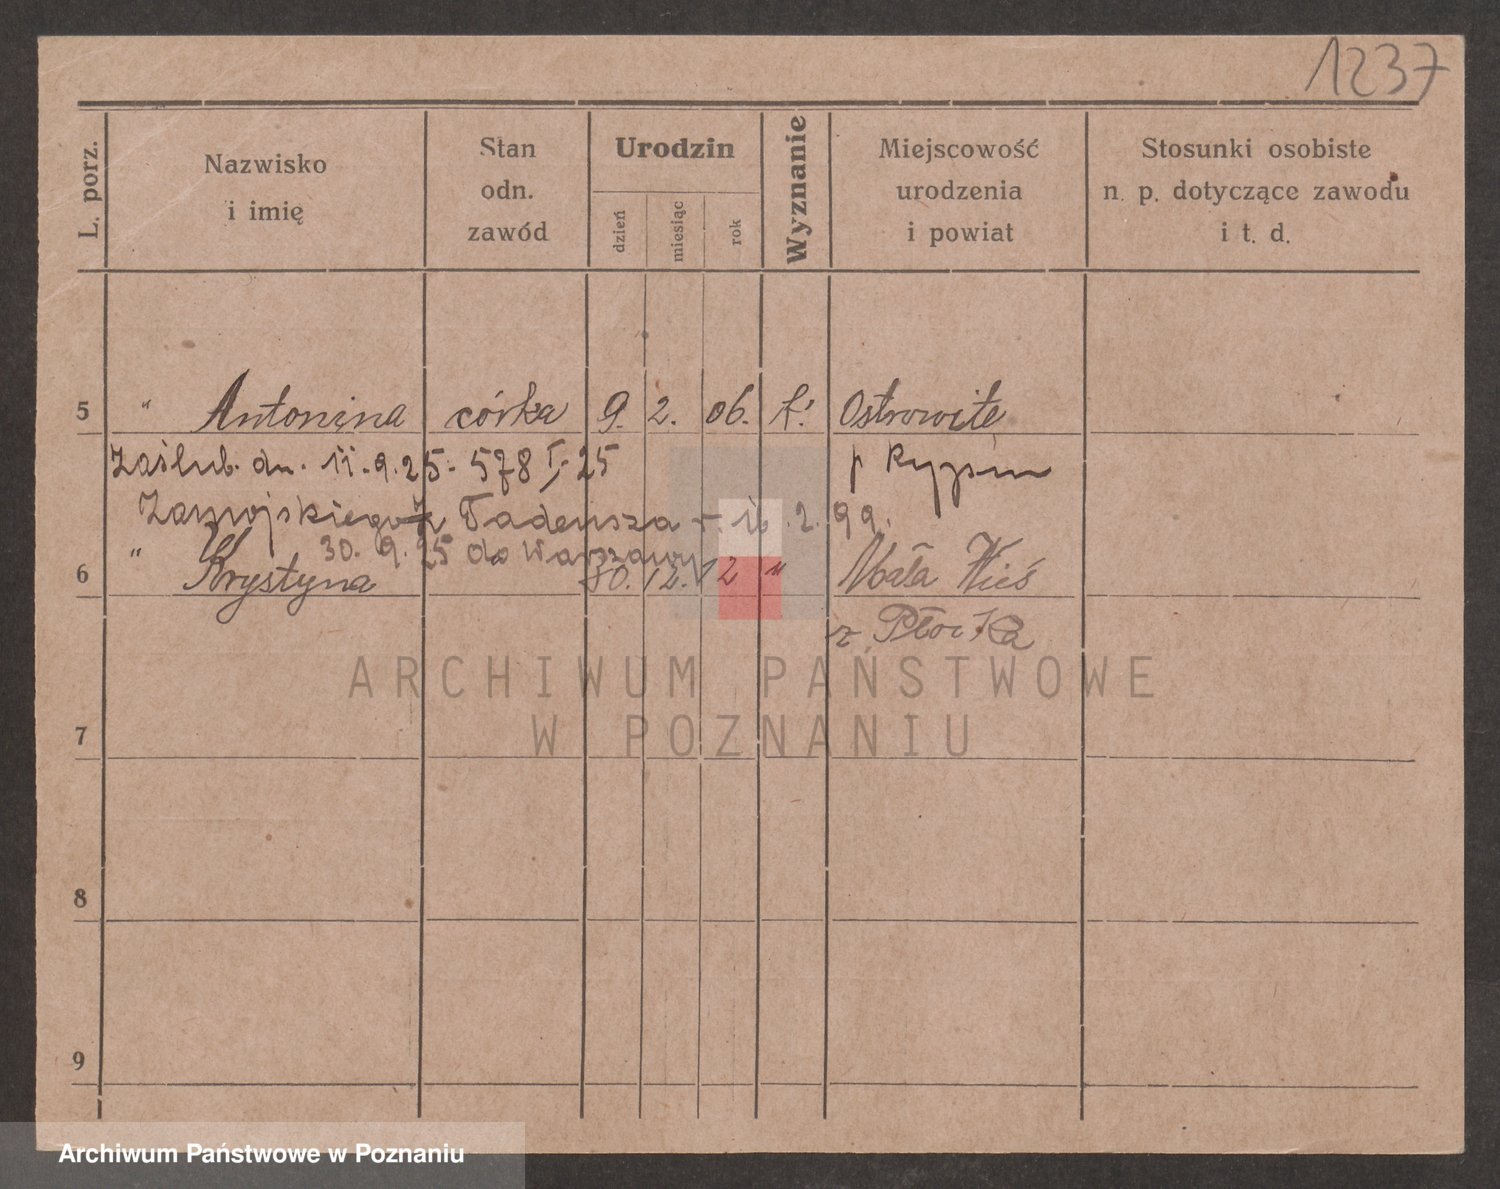 1237
L. porz.
Nazwisko
i imię
Stan
odn.
zawód
Urodzin
dzień
miesiąc
rok
Wyznanie
Miejscowość
urodzenia
i powiat
Stosunki osobiste
n. p. dotyczące zawodu
i t. d.
5 " Antonina córka 9. 2. 06. k. Ostrowite
Zaślub. dn. 11.9.25 - 578 25 p Rypin
Zamojskiego Tadeusza 2.99.
30. 9. 25 do Warszawy
6 " Krystyna 12. 12 " Mała Wieś
z Płocka
ARCHIWUM PAŃSTWOWE
7 W POZNANIU
8
9
Archiwum Państwowe w Poznaniu